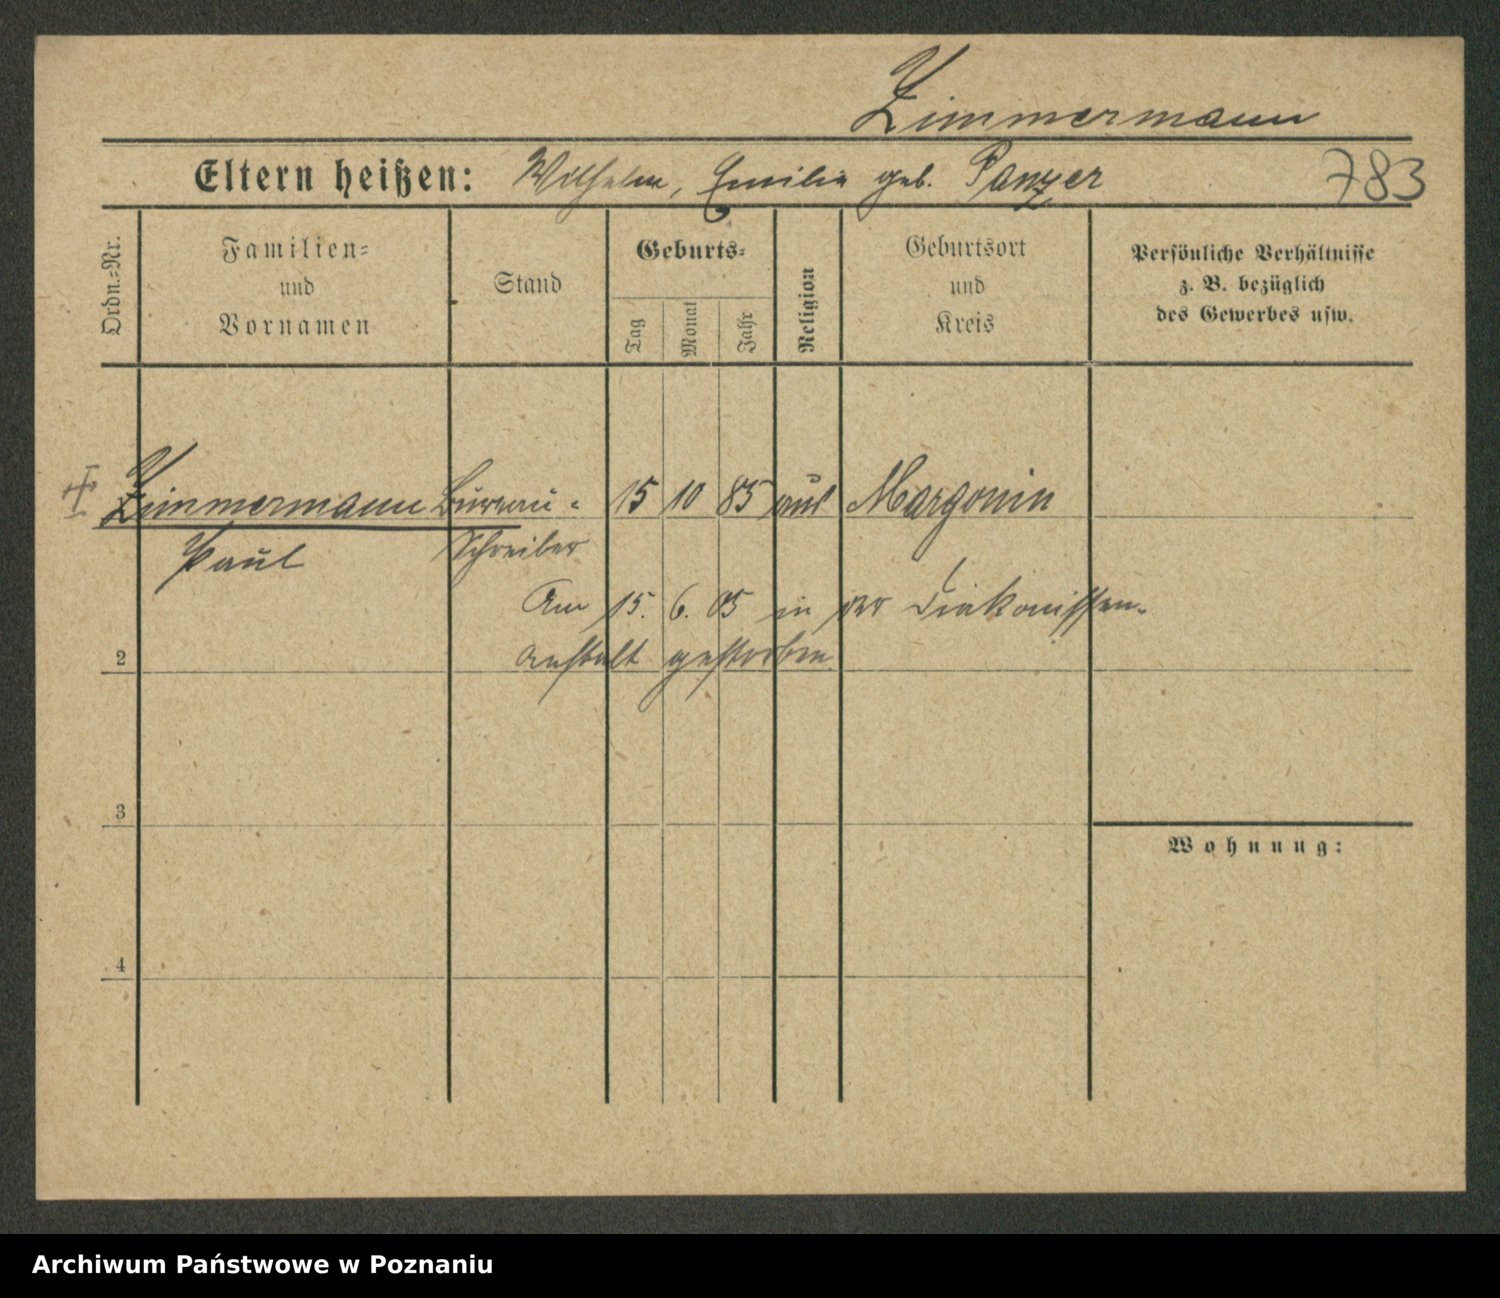 Zimmermann
Eltern heißen: Wilhelm, Emilie geb. Panzer 783
Ordn.-Nr.
Familien- und Vornamen
Stand
Geburts-
Tag Monat Jahr
Religion
Geburtsort und Kreis
Persönliche Verhältnisse
z. B. bezüglich
des Gewerbes usw.
Zimmermann Bureau- 15 10 85 Margonin
Paul Schreiber
Am 15. 6. 05 in der Diakonissen-
anstalt gestorben
2
3
Wohnung:
4
Archiwum Państwowe w Poznaniu